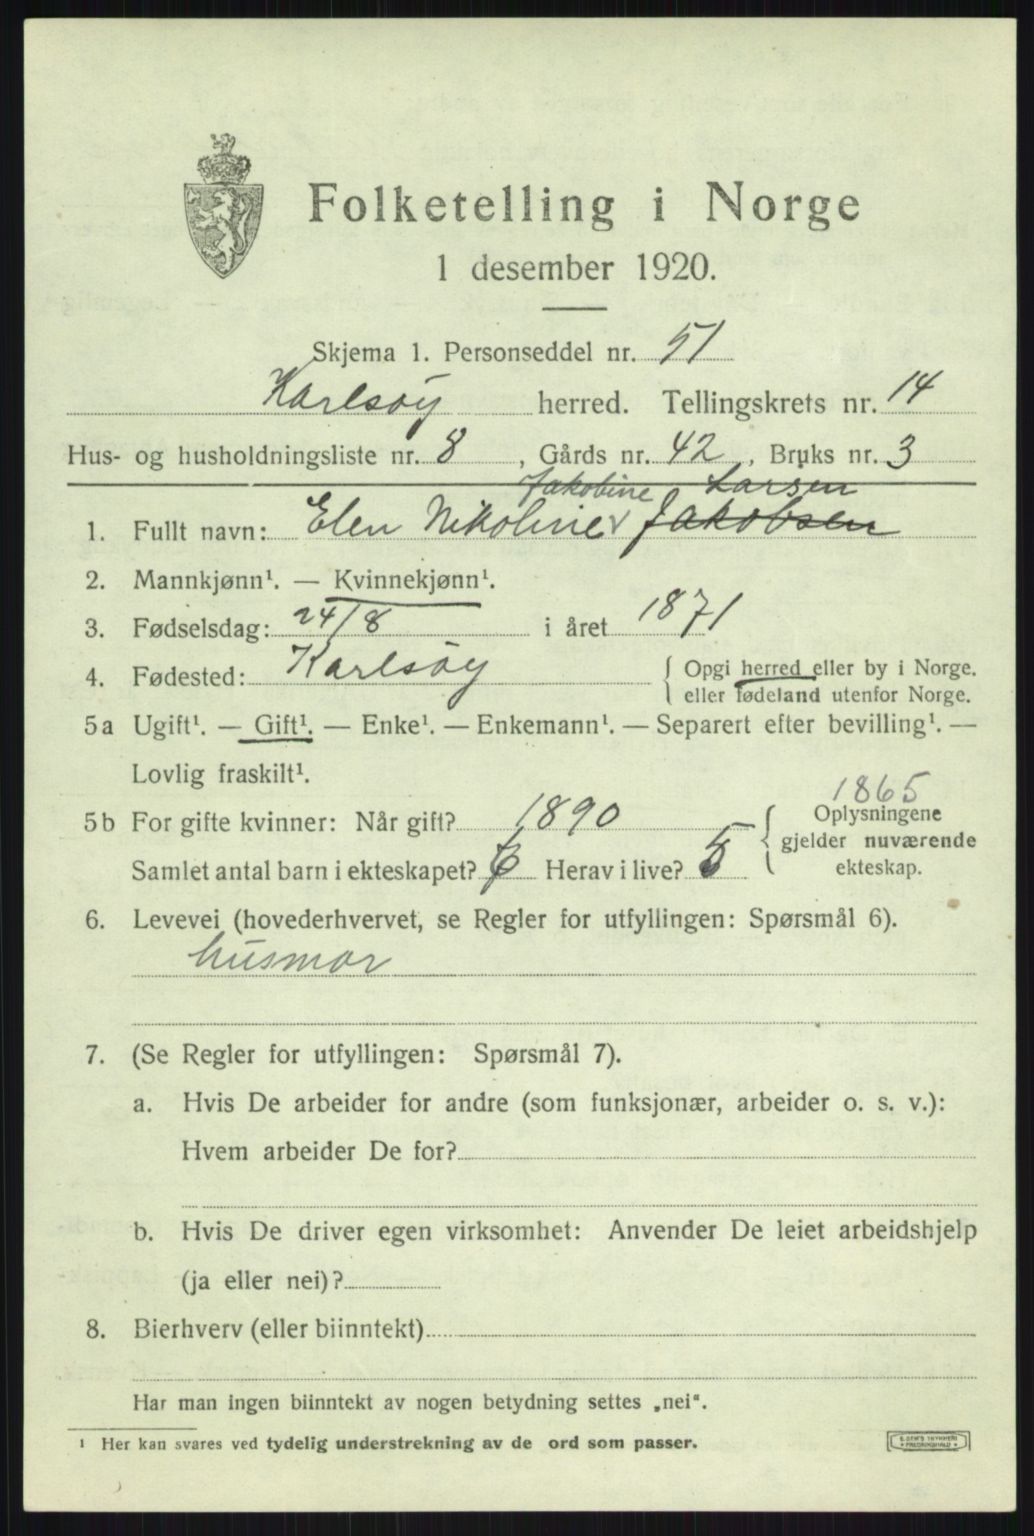 Folketelling i Norge
1 desember 1920.
Skjema 1. Personseddel nr. 51
Karlsøy herred. Tellingskrets nr. 14
Hus- og husholdningsliste nr. 8, Gårds nr. 42, Bruks nr. 3
Jakobine Larsen
1. Fullt navn: Elen Nikoline Jakobsen
2. Mannkjønn¹. — Kvinnekjønn¹.
3. Fødselsdag: 24/8 i året 1871
4. Fødested: Karlsøy { Opgi herred eller by i Norge.
eller fødeland utenfor Norge.
5a Ugift¹. — Gift¹. — Enke¹. — Enkemann¹. — Separert efter bevilling¹. —
Lovlig fraskilt¹.
1865
5b For gifte kvinner: Når gift? 1890 { Oplysningene
gjelder nuværende
ekteskap.
Samlet antal barn i ekteskapet? 6 Herav i live? 5
6. Levevei (hovederhvervet, se Regler for utfyllingen: Spørsmål 6).
husmor
7. (Se Regler for utfyllingen: Spørsmål 7).
a. Hvis De arbeider for andre (som funksjonær, arbeider o. s. v.):
Hvem arbeider De for?
b. Hvis De driver egen virksomhet: Anvender De leiet arbeidshjelp
(ja eller nei)?
8. Bierhverv (eller biinntekt)
Har man ingen biinntekt av nogen betydning settes „nei“.
¹ Her kan svares ved tydelig understrekning av de ord som passer.